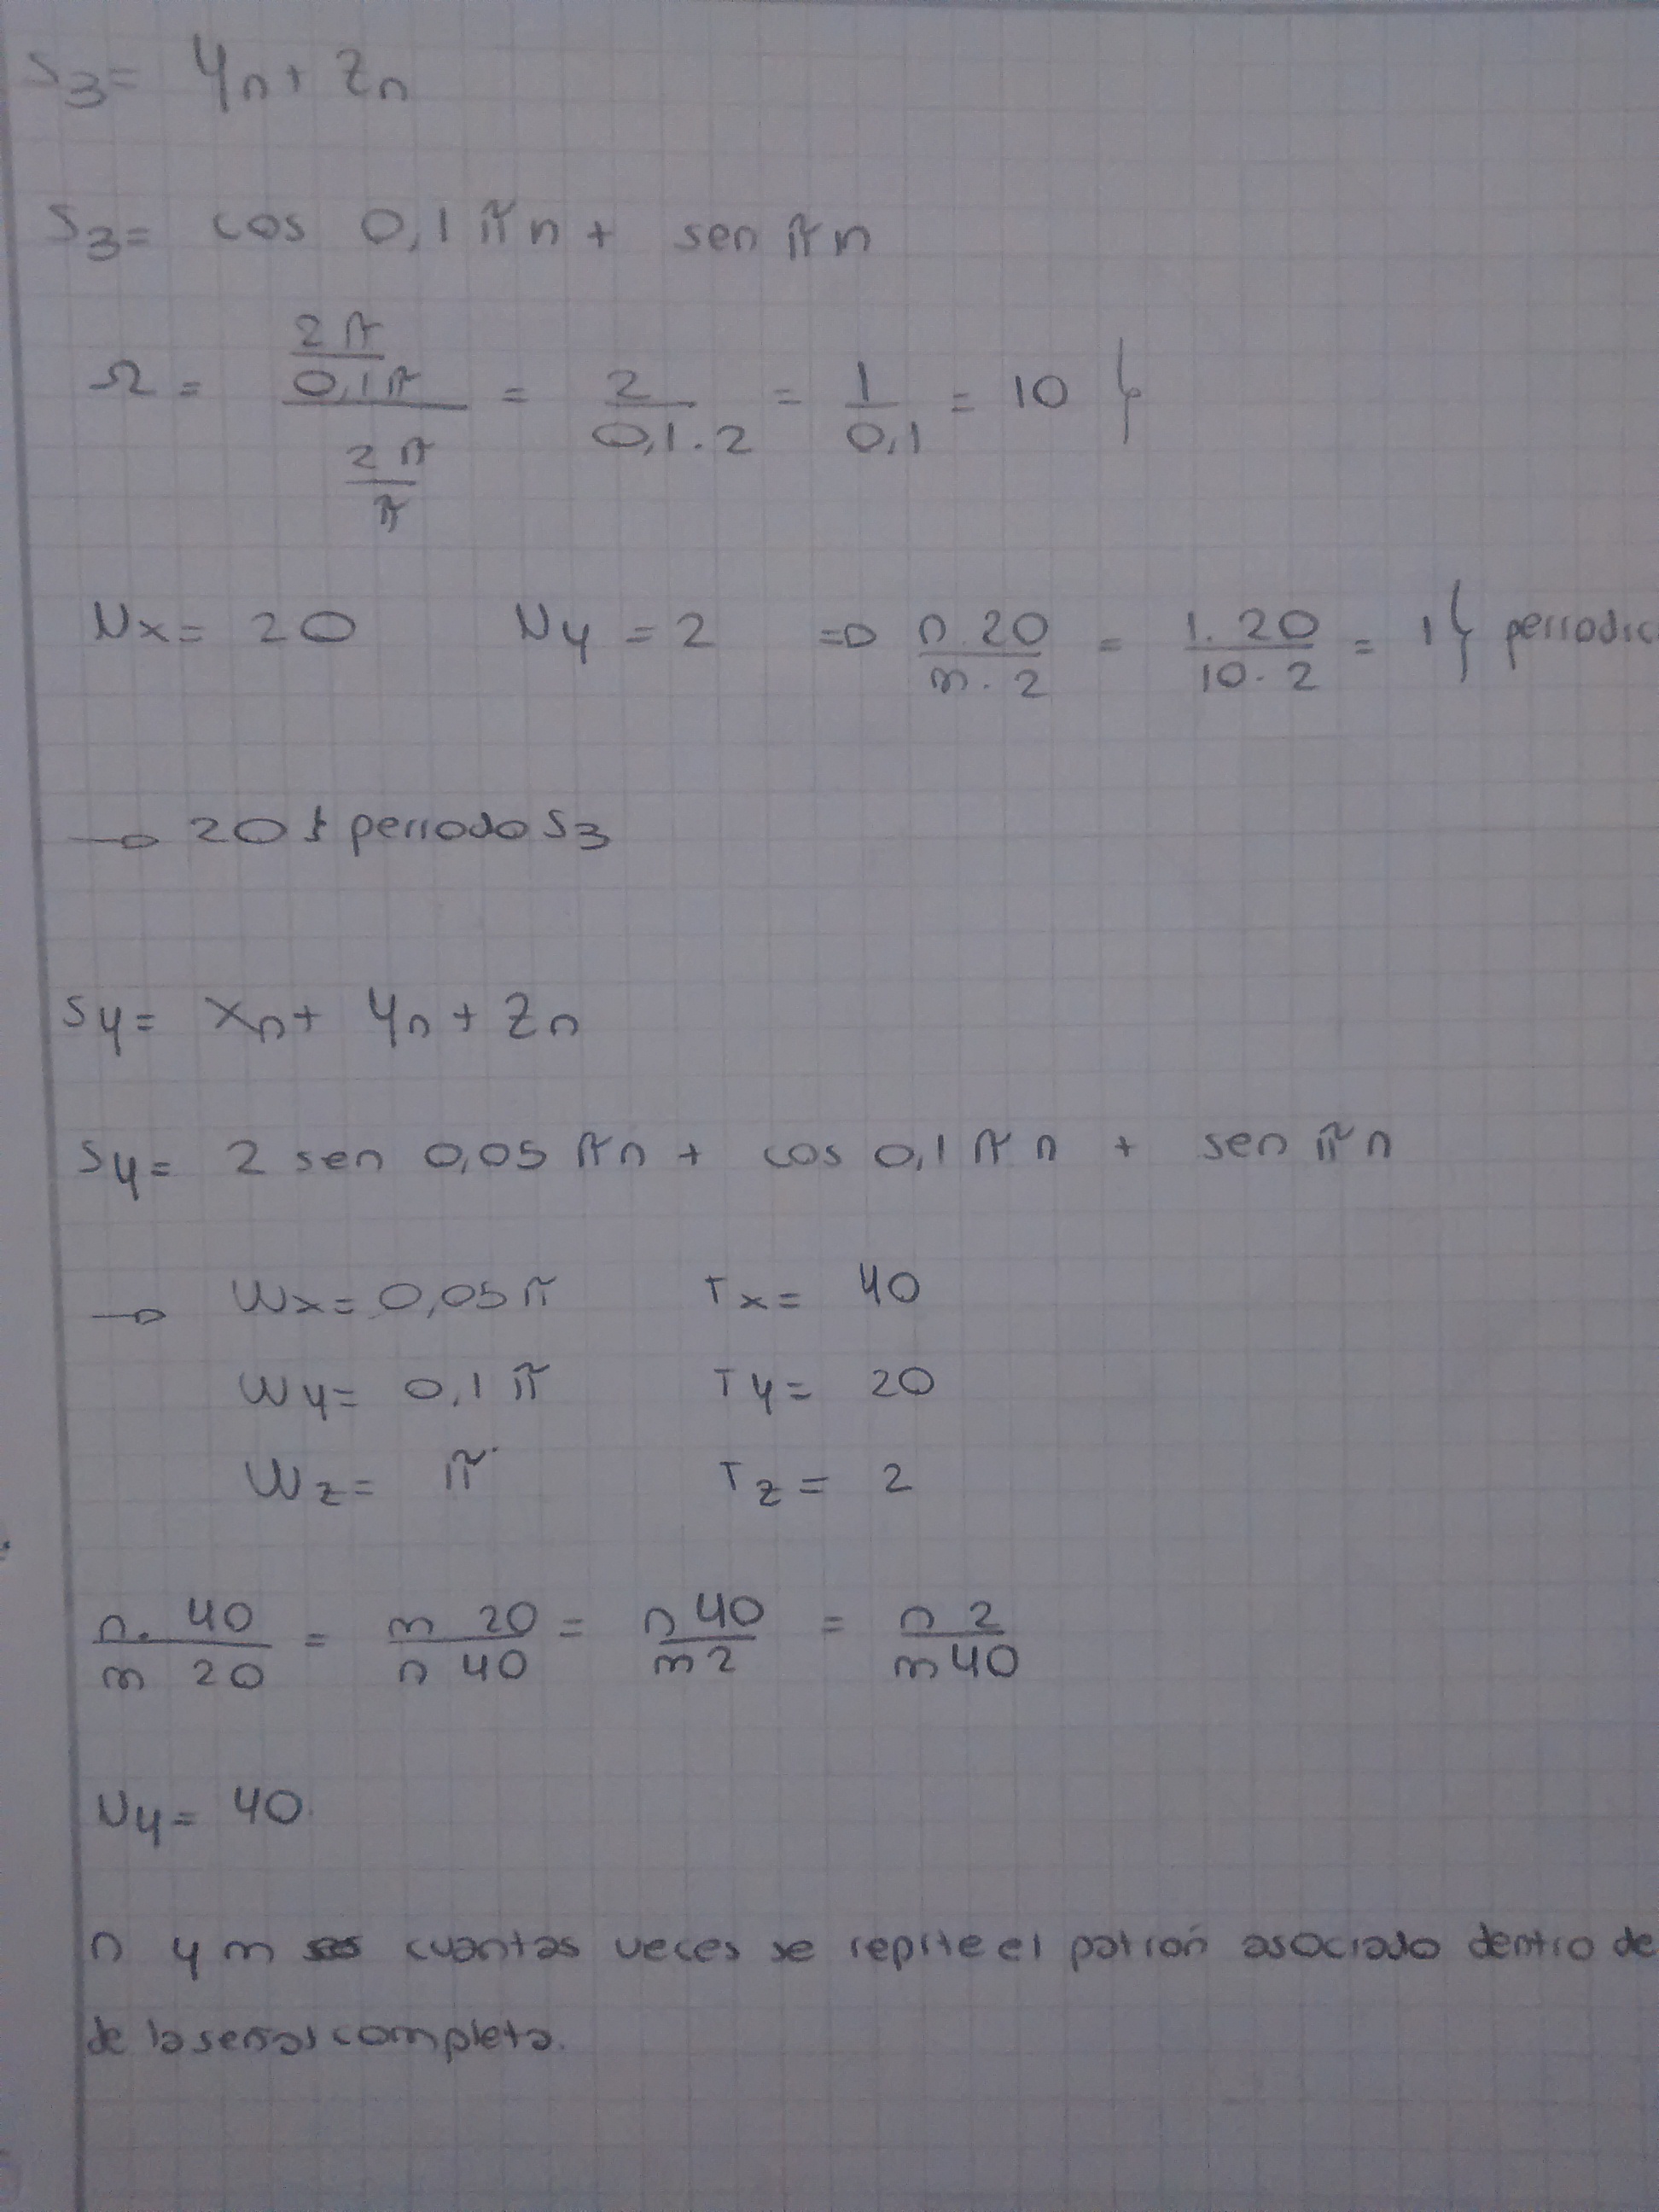 S3= Yn+ Zn
S3= cos 0,1 π n + sen π n
Ω = (2π/0,1π)/(2π/π) = 2/(0,1.2) = 1/0,1 = 10 }
Nx= 20 Ny = 2 => n.20/m.2 = 1.20/10.2 = 1 } periodic
→ 20 } periodo S3
S4= Xn+ Yn + Zn
S4= 2 sen 0,05 π n + cos 0,1 π n + sen π n
→ Wx= 0,05π Tx= 40
Wy= 0,1 π Ty= 20
Wz= π Tz= 2
n. 40/m 20 = m 20/n 40 = n 40/m 2 = n 2/m 40
N4= 40.
n y m cuantas veces se repite el patrón asociado dentro de
de la señal completa.